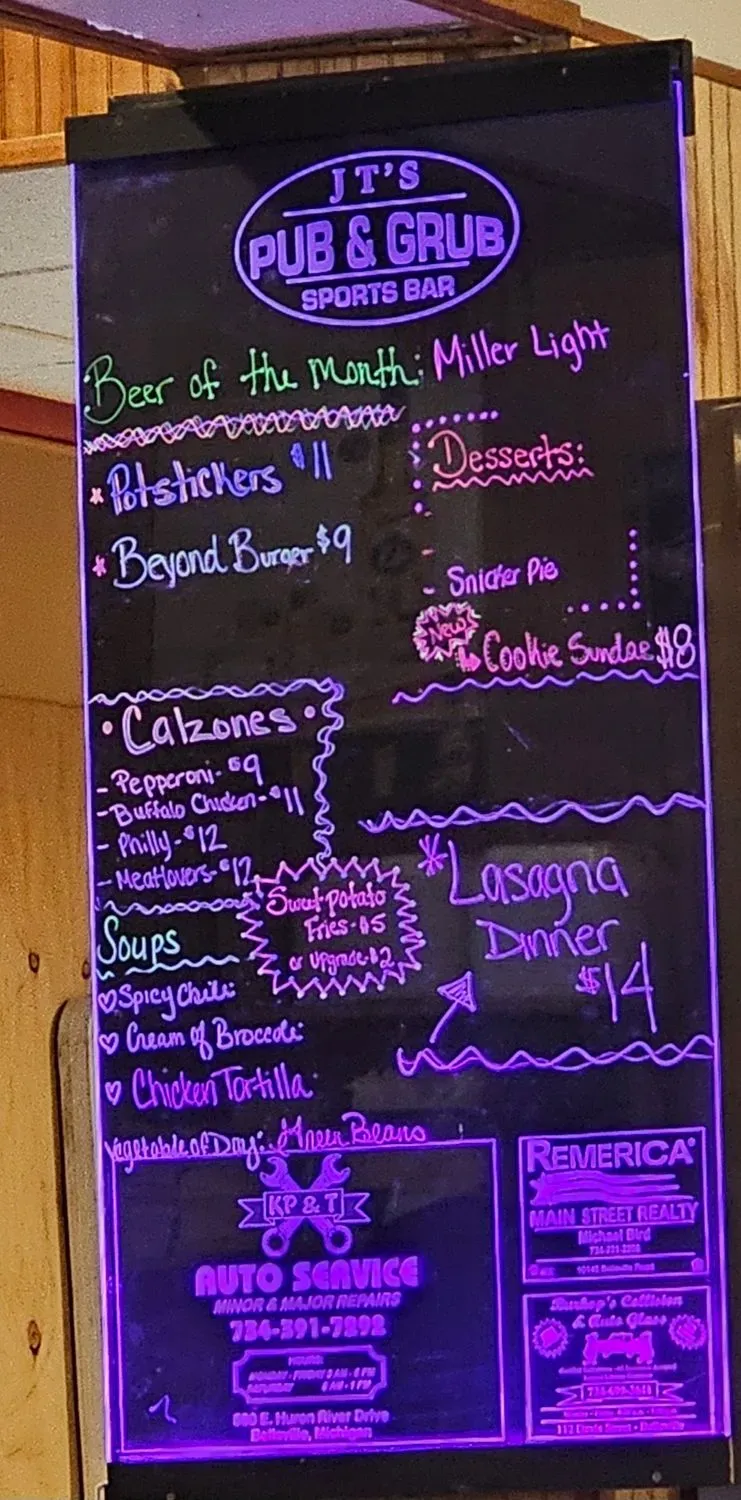 JT'S
PUB & GRUB
SPORTS BAR
Beer of the Month: Miller Light
* Potstickers $11
* Beyond Burger $9
Desserts:
-
-
- Snicker Pie
New!
Cookie Sundae $8
• Calzones •
- Pepperoni - $9
- Buffalo Chicken - $11
- Philly - $12
- Meatlovers - $12
Sweet Potato
Fries - $5
or upgrade - $2
* Lasagna
Dinner
$14
Soups
♡ Spicy Chili
♡ Cream of Broccoli
♡ Chicken Tortilla
Vegetable of Day: Green Beans
KP & T
AUTO SERVICE
MINOR & MAJOR REPAIRS
734-391-7292
HOURS:
MONDAY - FRIDAY 8 AM - 6 PM
SATURDAY 8 AM - 1 PM
E. Huron River Drive
Belleville, Michigan
REMERICA
MAIN STREET REALTY
Michael Bird
Belleville Road
Collision
& Auto Glass
Street - Belleville